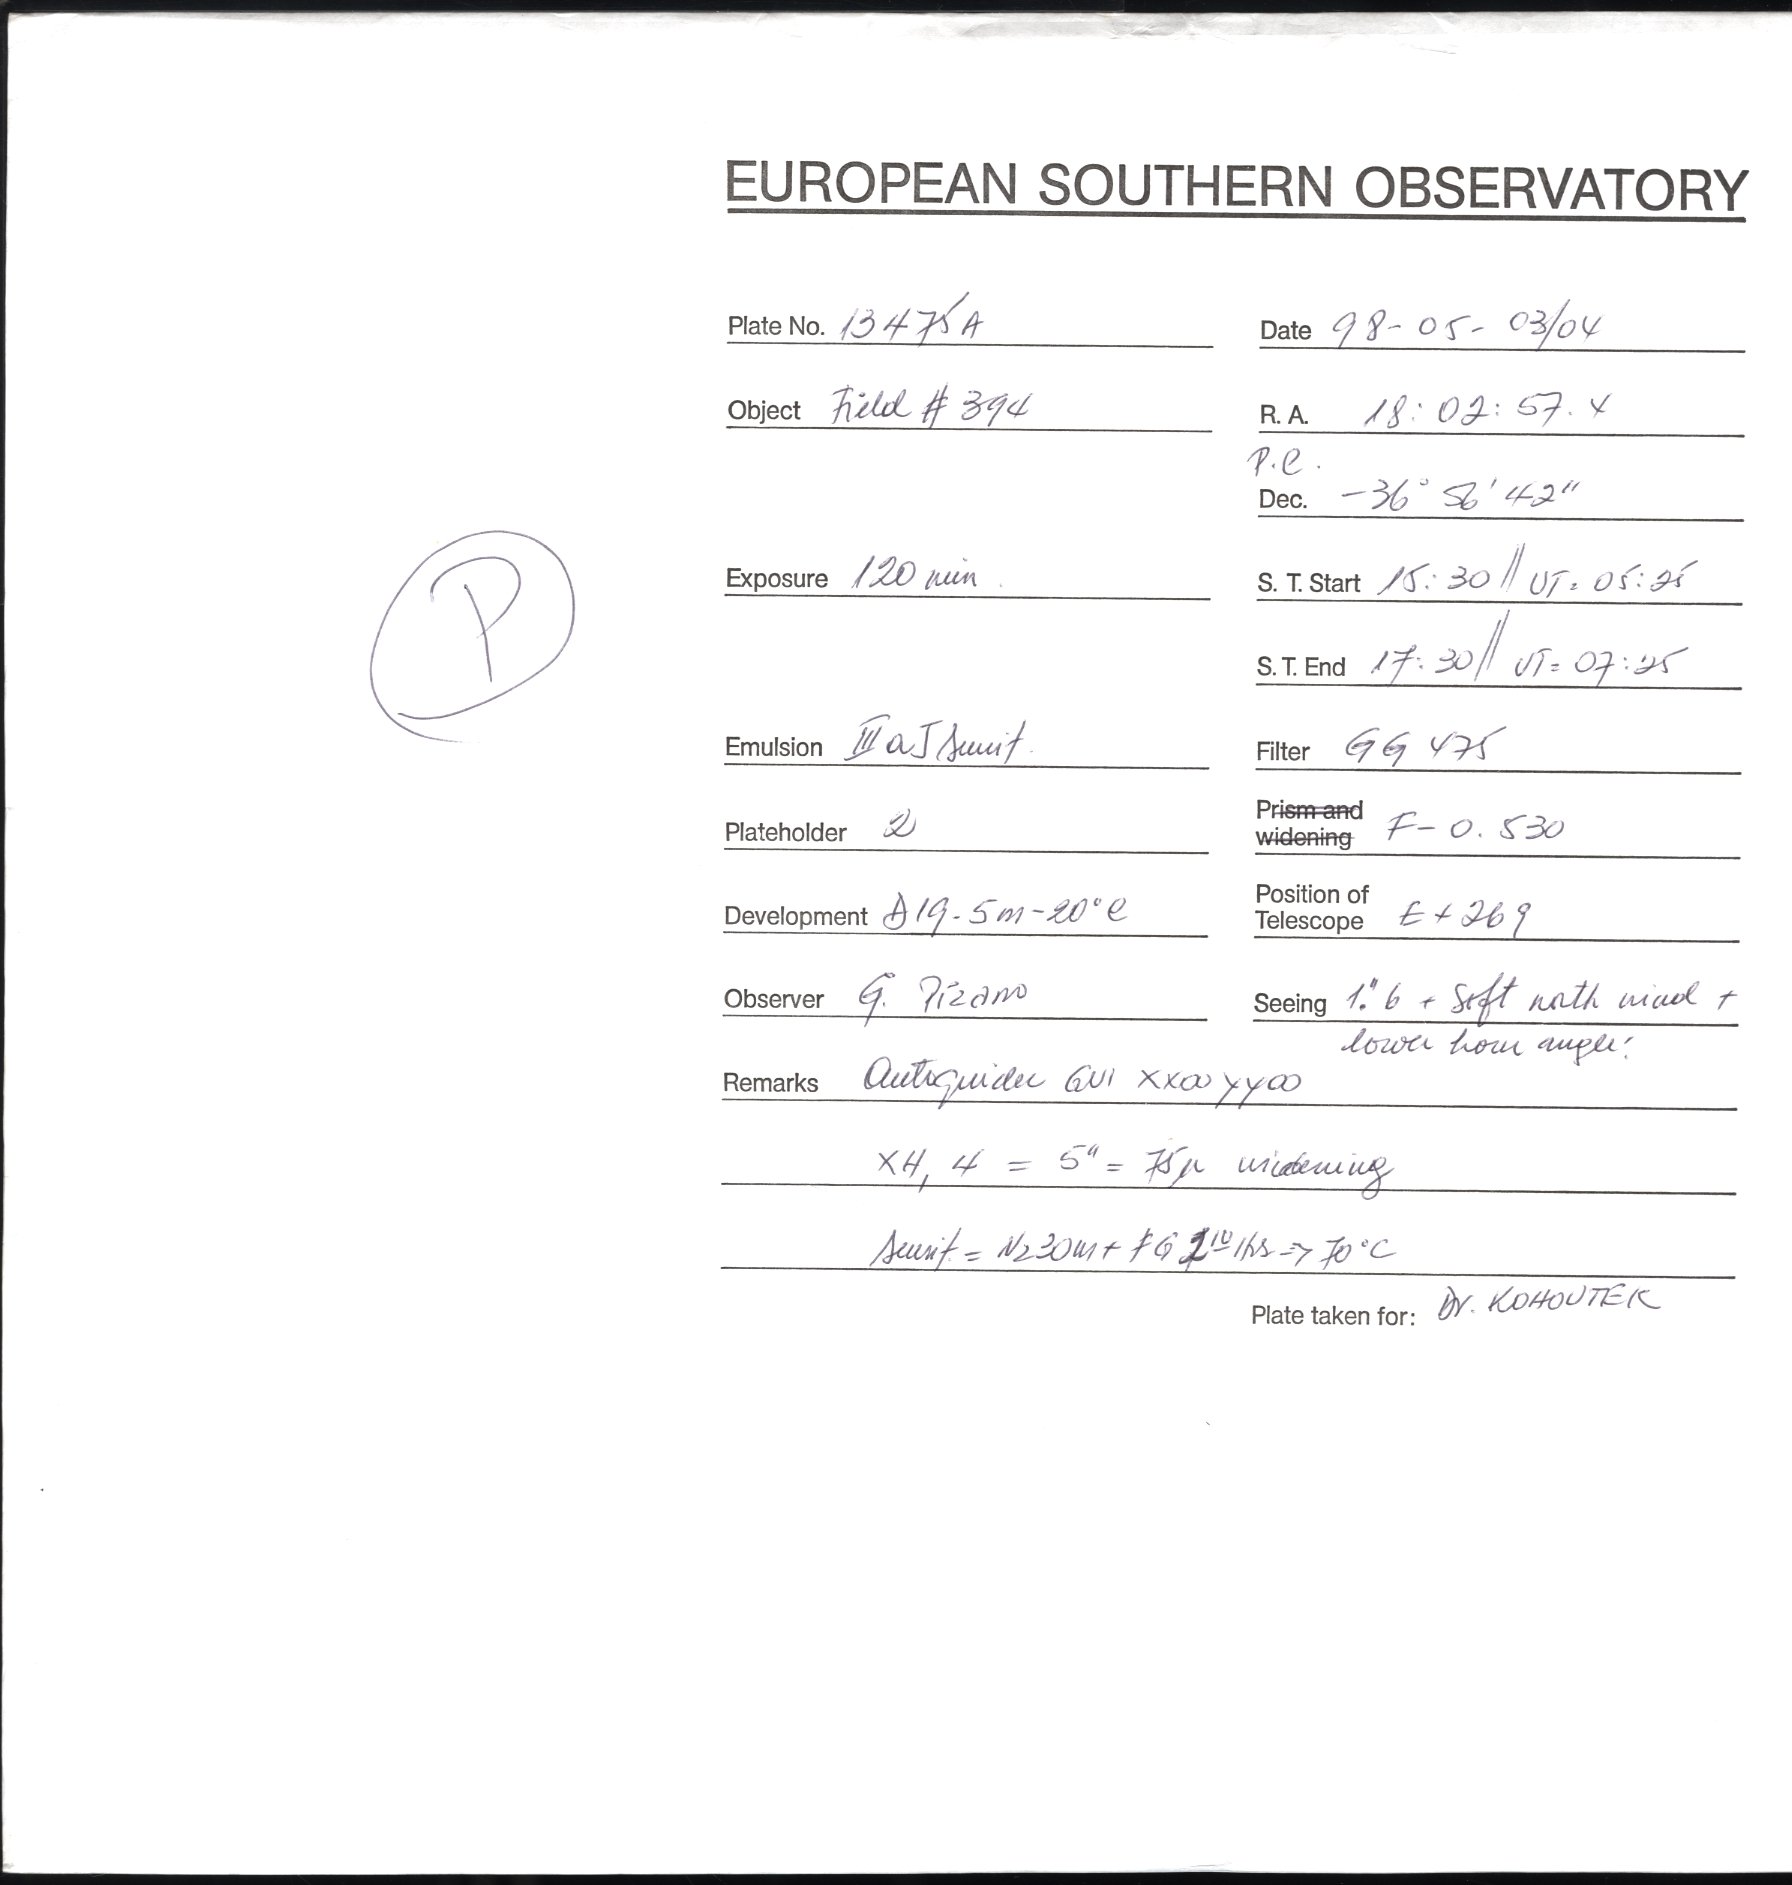 EUROPEAN SOUTHERN OBSERVATORY
Plate No. 13475A
Date 98-05-03/04
Object Field # 394
R. A. 18:02:57.4
P.C.
Dec. -36° 56' 42"
P
Exposure 120 min.
S. T. Start 15:30 // UT= 05:25
S. T. End 17:30 // UT= 07:25
Emulsion IIIaJ sensit.
Filter GG 475
Plateholder 2
Prism and
widening F- 0.530
Development D19-5m-20°C
Position of
Telescope E + 269
Observer G. Pizarro
Seeing 1."6 + Soft north wind +
lower hour angle!
Remarks Autoguider GUI XX00 YY00
XH, 4 = 5" = 75µ widening
Sensit = N2 30m + FG hrs => 70°C
Plate taken for: Dr. KOHOUTEK